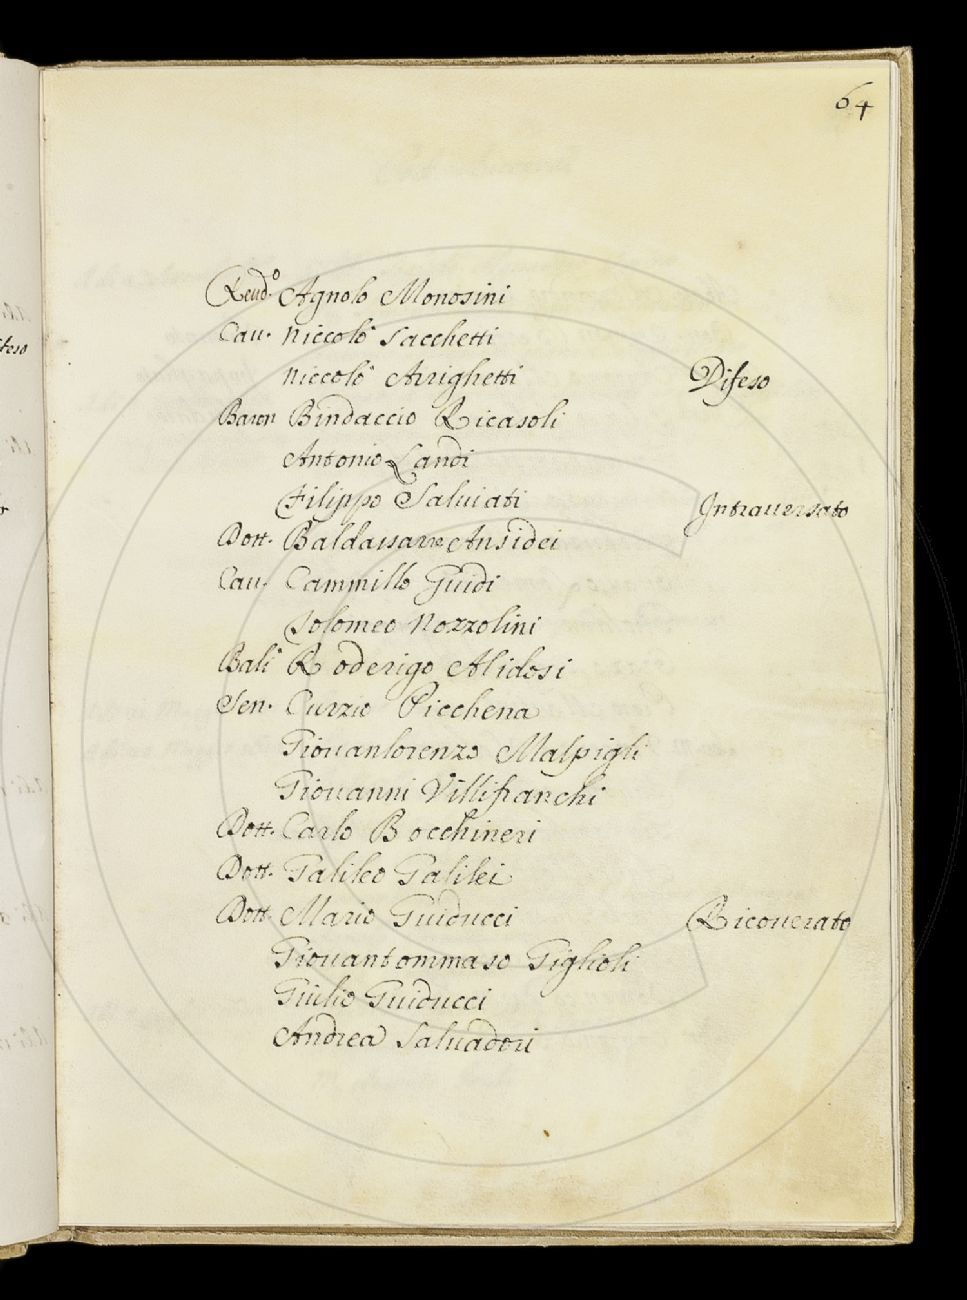 64
Reud.o Agnolo Monosini
Cau. Niccolò Sacchetti
Niccolò Arrighetti Difeso
Baron Bindaccio Ricasoli
Antonio Landi
Filippo Saluiati Intrauersato
Dott. Baldassarre Ansidei
Cau. Cammillo Guidi
Jolomeo Nozzolini
Balì Roderigo Alidosi
Sen. Curzio Picchena
Giouanlorenzo Malpigli
Giouanni Villifranchi
Dott. Carlo Bocchineri
Dott. Galileo Galilei
Dott. Mario Guiducci Ricouerato
Giouantommaso Giglioli
Giulio Guiducci
Andrea Saluadori